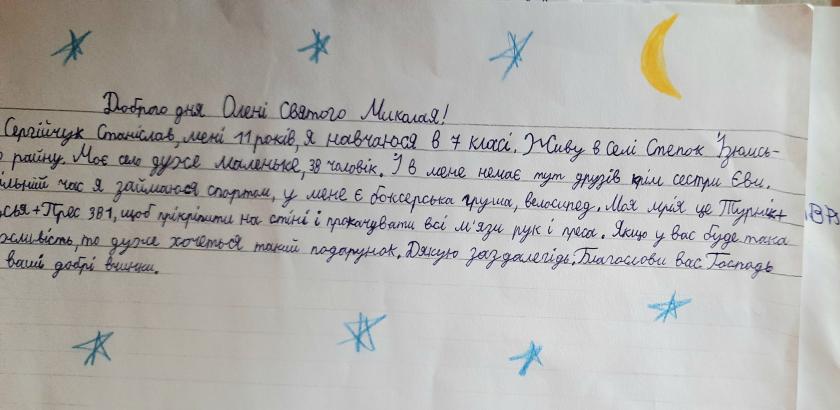 Доброго дня Олені Святого Миколая!
Сергійчук Станіслав, мені 11 років, я навчаюся в 7 класі. Живу в селі Степок Ізюмсь-
о райну. Моє село дуже маленьке, 38 чоловік. І в мене немає тут друзів крім сестри Єви.
ільний час я займаюся спортом, у мене є боксерська груша, велосипед. Моя мрія це Турнік+
сья+Прес 3в1, щоб прікріпити на стіні і прокачувати всі м'язи рук і преса. Якщо у вас буде така
жливість, то дуже хочеться такий подарунок. Дякую заздалегідь. Благослови вас Господь
ваші добрі вчинки.